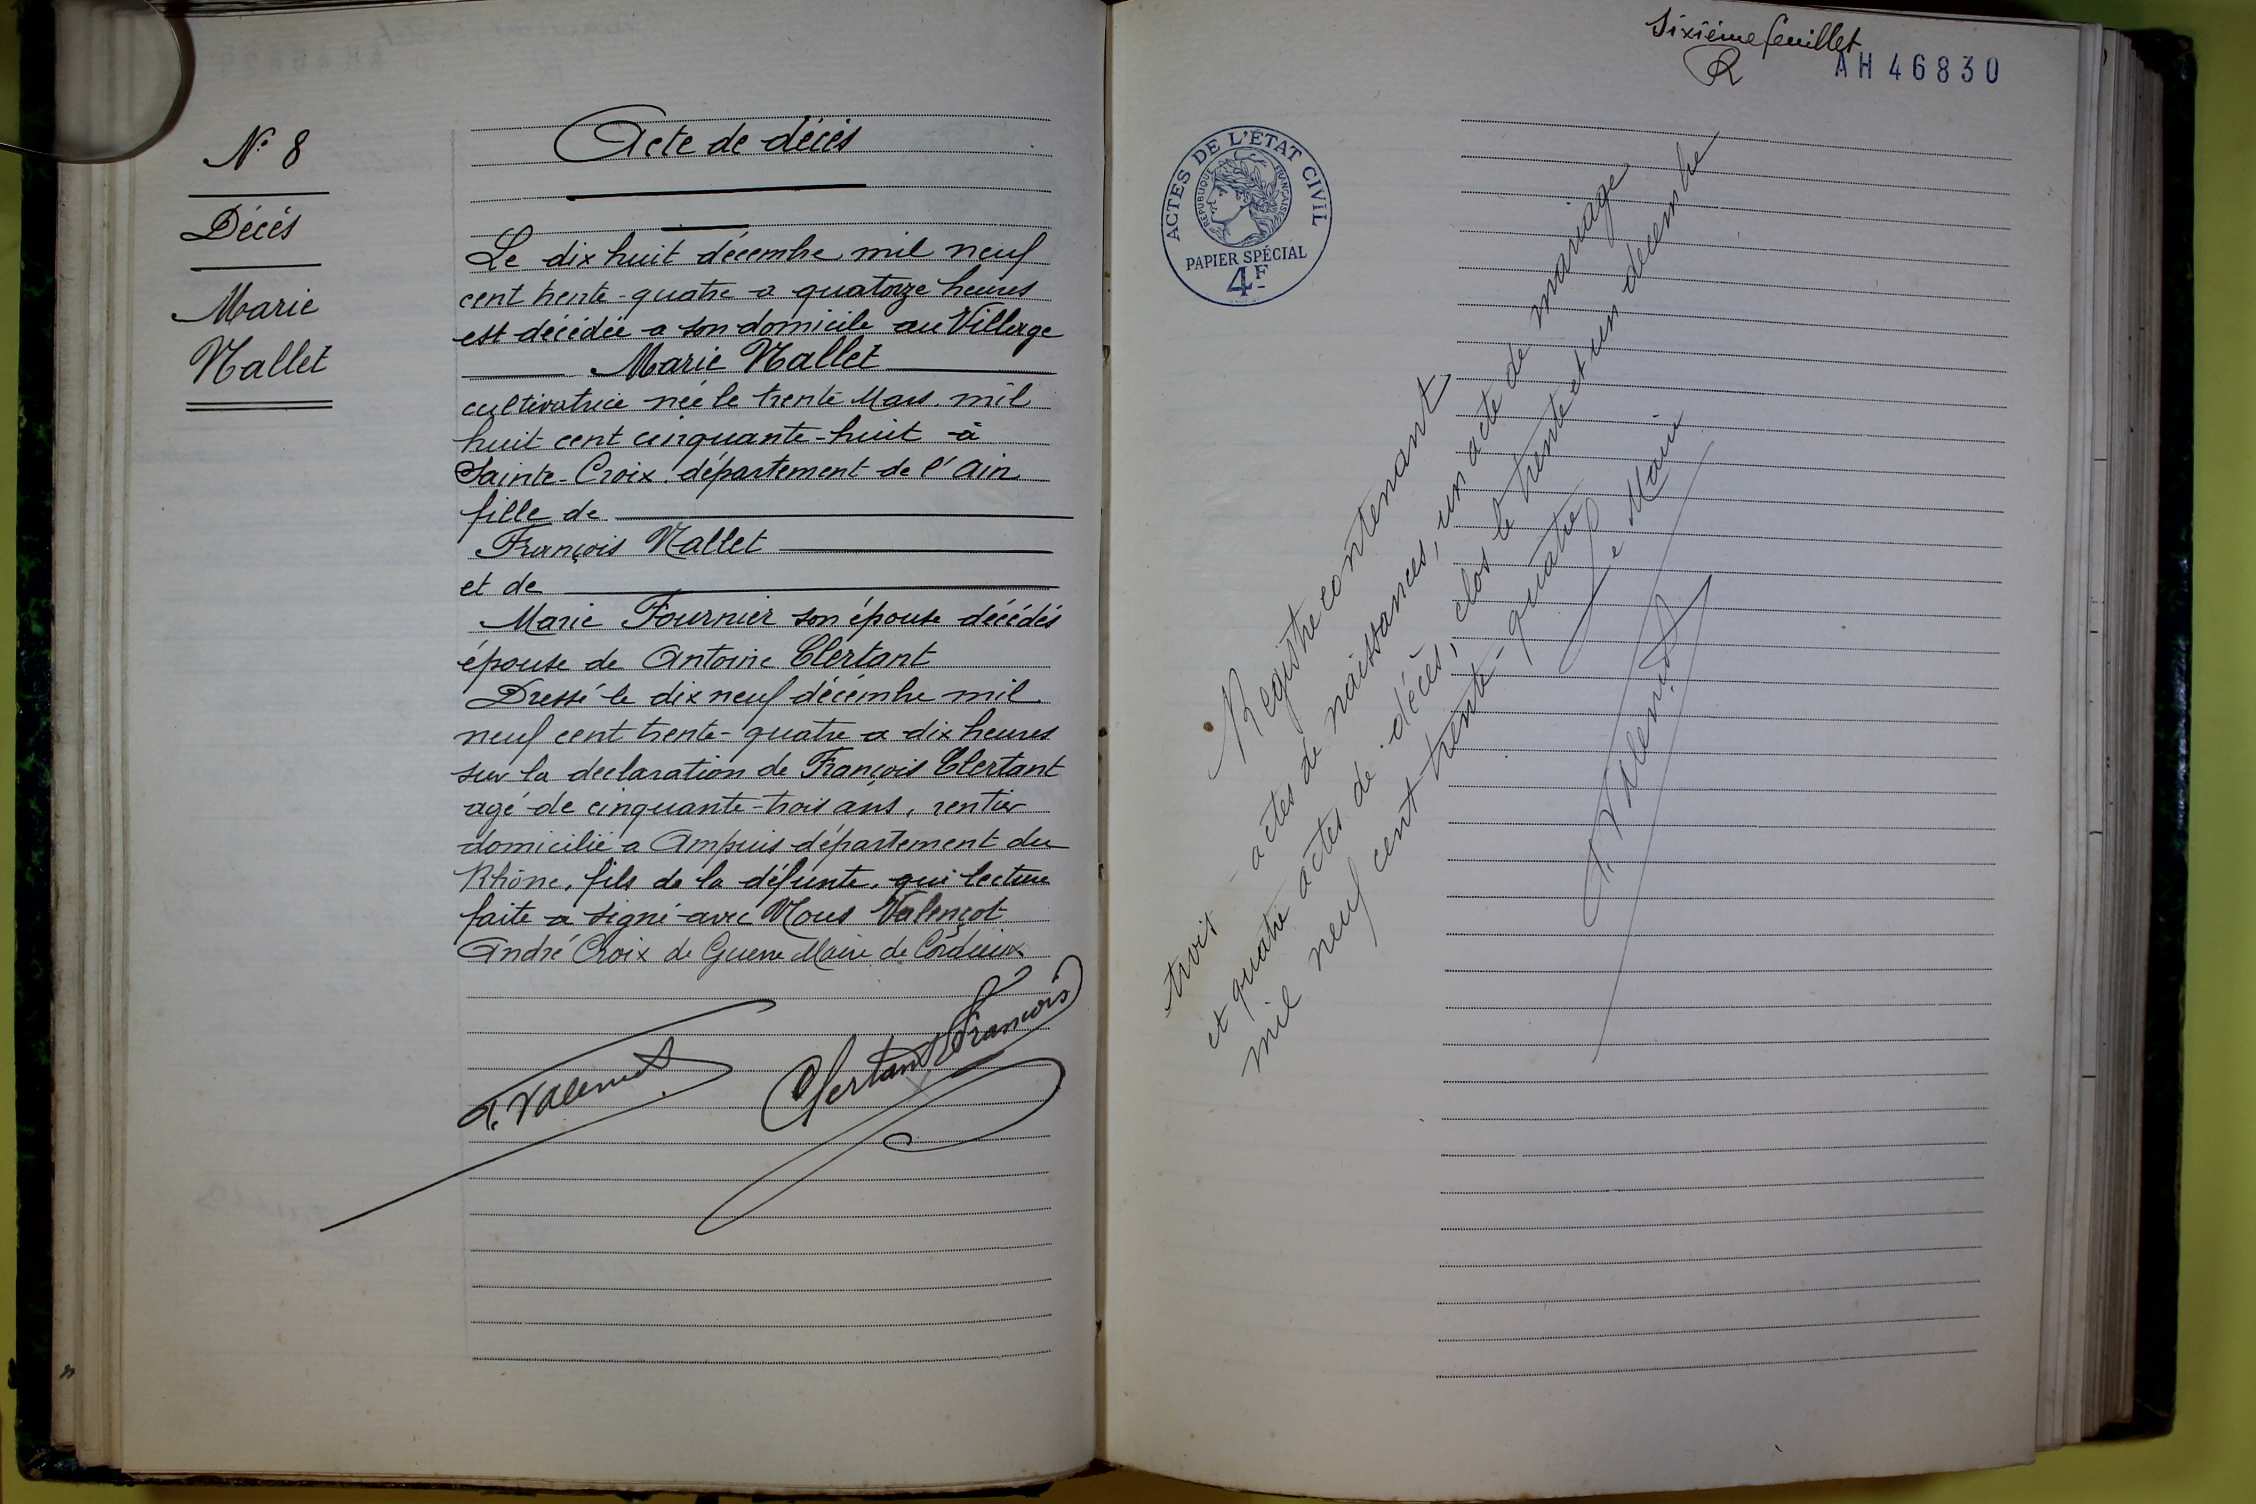 N° 8
Décés
Marie
Nallet
Acte de décés
Le dix huit décembre mil neuf
cent trente-quatre a quatorze heures
est décédée a son domicile au Village
Marie Nallet
cultivatrice née le trente Mars mil
huit cent cinquante-huit à
Sainte-Croix département de l'Ain
fille de
François Nallet
et de
Marie Fournier son épouse décédés
épouse de Antoine Clertant
Dressé le dix neuf décémbre mil
neuf cent trente-quatre a dix heures
sur la declaration de François Clertant
agé de cinquante-trois ans, rentier
domicilié a Ampuis département du
Rhône, fils de la défunte, qui lecture
faite a signé avec Nous Valençot
André Croix de Guerre Maire de Cordieux
A. Valençot
Clertant François
Sixième feuillet
AH 46830
ACTES DE L'ÉTAT CIVIL
RÉPUBLIQUE FRANÇAISE
PAPIER SPÉCIAL
4F
Registre contenant
trois actes de naissances, un acte de mariage
et quatre actes de décès, clos le trente et un decembre
mil neuf cent trente-quatre
Le Maire
A. Valençot